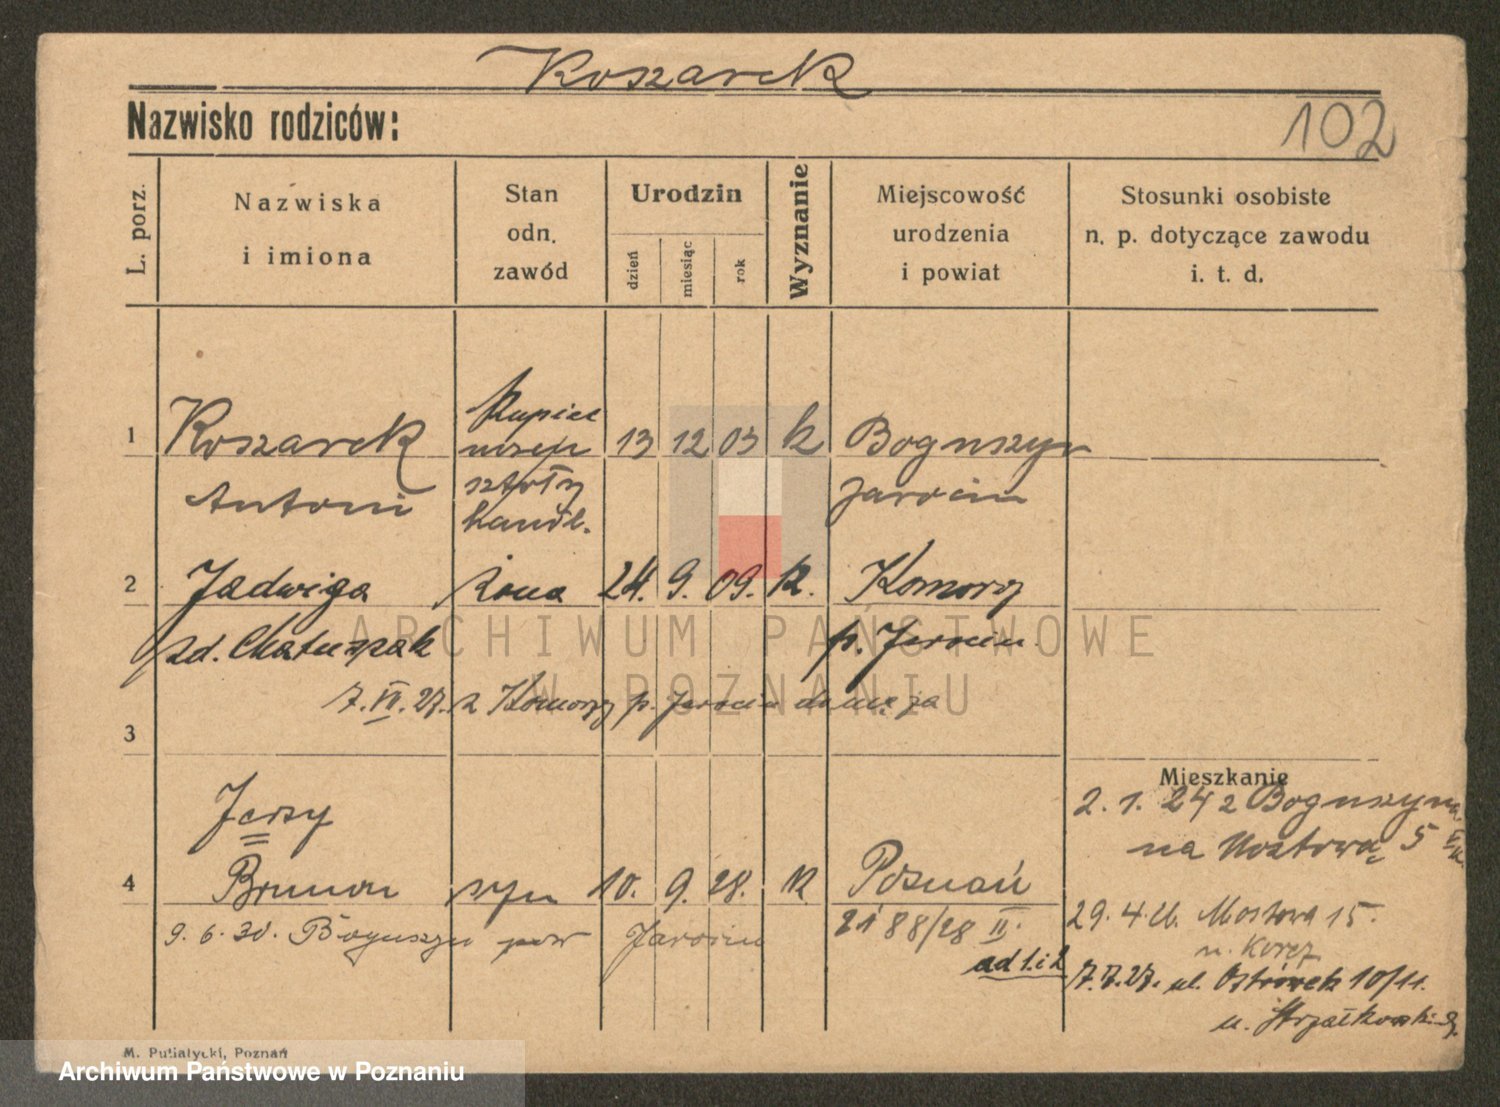 Koszarek
Nazwisko rodziców:
102
L. porz.
Nazwiska
i imiona
Stan
odn.
zawód
Urodzin
dzień
miesiąc
rok
Wyznanie
Miejscowość
urodzenia
i powiat
Stosunki osobiste
n. p. dotyczące zawodu
i. t. d.
1 Koszarek Kupiec 13 12 03 k Boguszyn
Antoni handl. Jarocin
2 Jadwiga żona 24. 9. 09. k. Komorze
zd. p. Jarocin
7. IV. 27. z Komorzy p. Jarocin do męża
3
Mieszkanie
Jerzy
2. 1. 24 z Boguszyna
na Mostową 5
4 Brunon syn 10. 9. 28. k Poznań
29. 4. Mostowa 15.
9. 6. 30. Boguszyn pow Jarocin
88/28 II.
ad 1. i 2
7. IV. 27. ul. Ostrówek 10/11.
M. Putiatycki, Poznań
ARCHIWUM PAŃSTWOWE
W POZNANIU
Archiwum Państwowe w Poznaniu